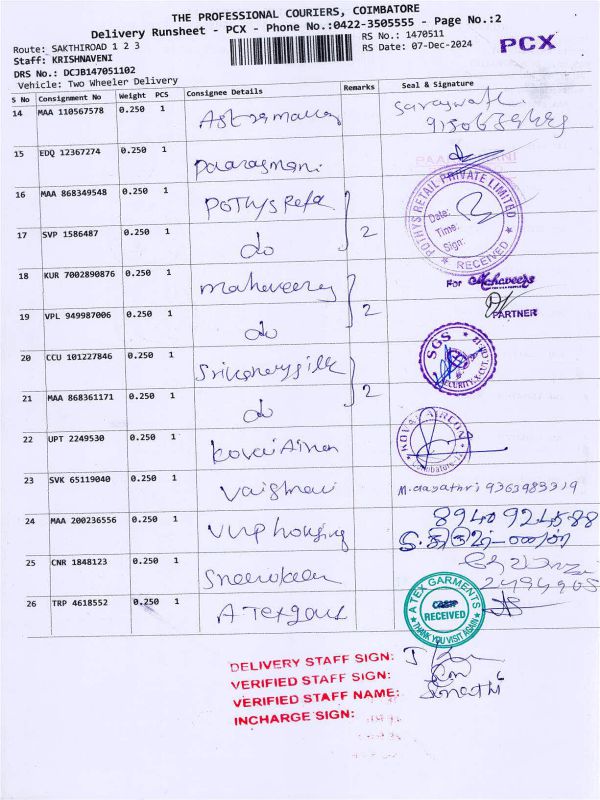 THE PROFESSIONAL COURIERS, COIMBATORE
Delivery Runsheet - PCX - Phone No.:0422-3505555 - Page No.:2
Route: SAKTHIROAD 1 2 3
RS No.: 1470511
Staff: KRISHNAVENI
RS Date: 07-Dec-2024
PCX
DRS No.: DCJB147051102
Vehicle: Two Wheeler Delivery
S No Consignment No Weight PCS Consignee Details Remarks Seal & Signature
14 MAA 110567578 0.250 1
15 EDQ 12367274 0.250 1
16 MAA 868349548 0.250 1 Pothys Reta
POTHYS RETAIL PRIVATE LIMITED
Date:
Time:
Sign:
RECEIVED
17 SVP 1586487 0.250 1 do 2
18 KUR 7002890876 0.250 1 mahaveers
For Mahaveers
PARTNER
19 VPL 949987006 0.250 1 do 2
20 CCU 101227846 0.250 1
SGS
21 MAA 868361171 0.250 1 do 2
22 UPT 2249530 0.250 1 kovai Aircon
KOVAI AIRCON
Coimbatore
23 SVK 65119040 0.250 1 Vaishnavi
24 MAA 200236556 0.250 1 VRP housing 8940924588
25 CNR 1848123 0.250 1
26 TRP 4618552 0.250 1 A Tex gar
A TEX GARMENTS
RECEIVED
THANK YOU VISIT AGAIN
DELIVERY STAFF SIGN:
VERIFIED STAFF SIGN:
VERIFIED STAFF NAME:
INCHARGE SIGN: